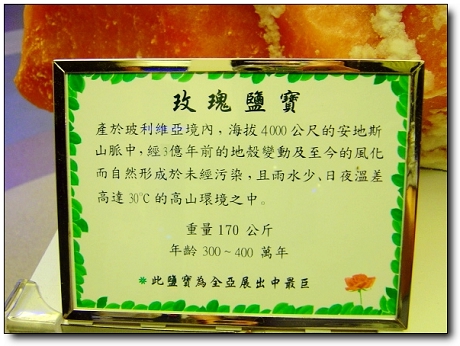 玫瑰鹽寶
產於玻利維亞境內，海拔4000公尺的安地斯
山脈中，經3億年前的地殼變動及至今的風化
而自然形成於未經污染，且雨水少、日夜溫差
高達30℃的高山環境之中。
重量170公斤
年齡300~400萬年
*此鹽寶為全亞展出中最巨